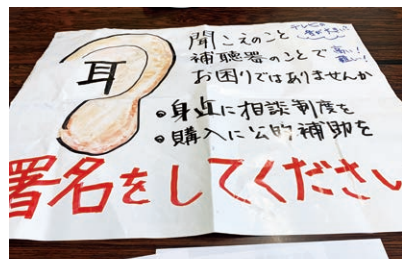 耳
聞こえのこと
補聴器のことで
お困りではありませんか
•身近に相談制度を
•購入に公的補助を
署名をしてください